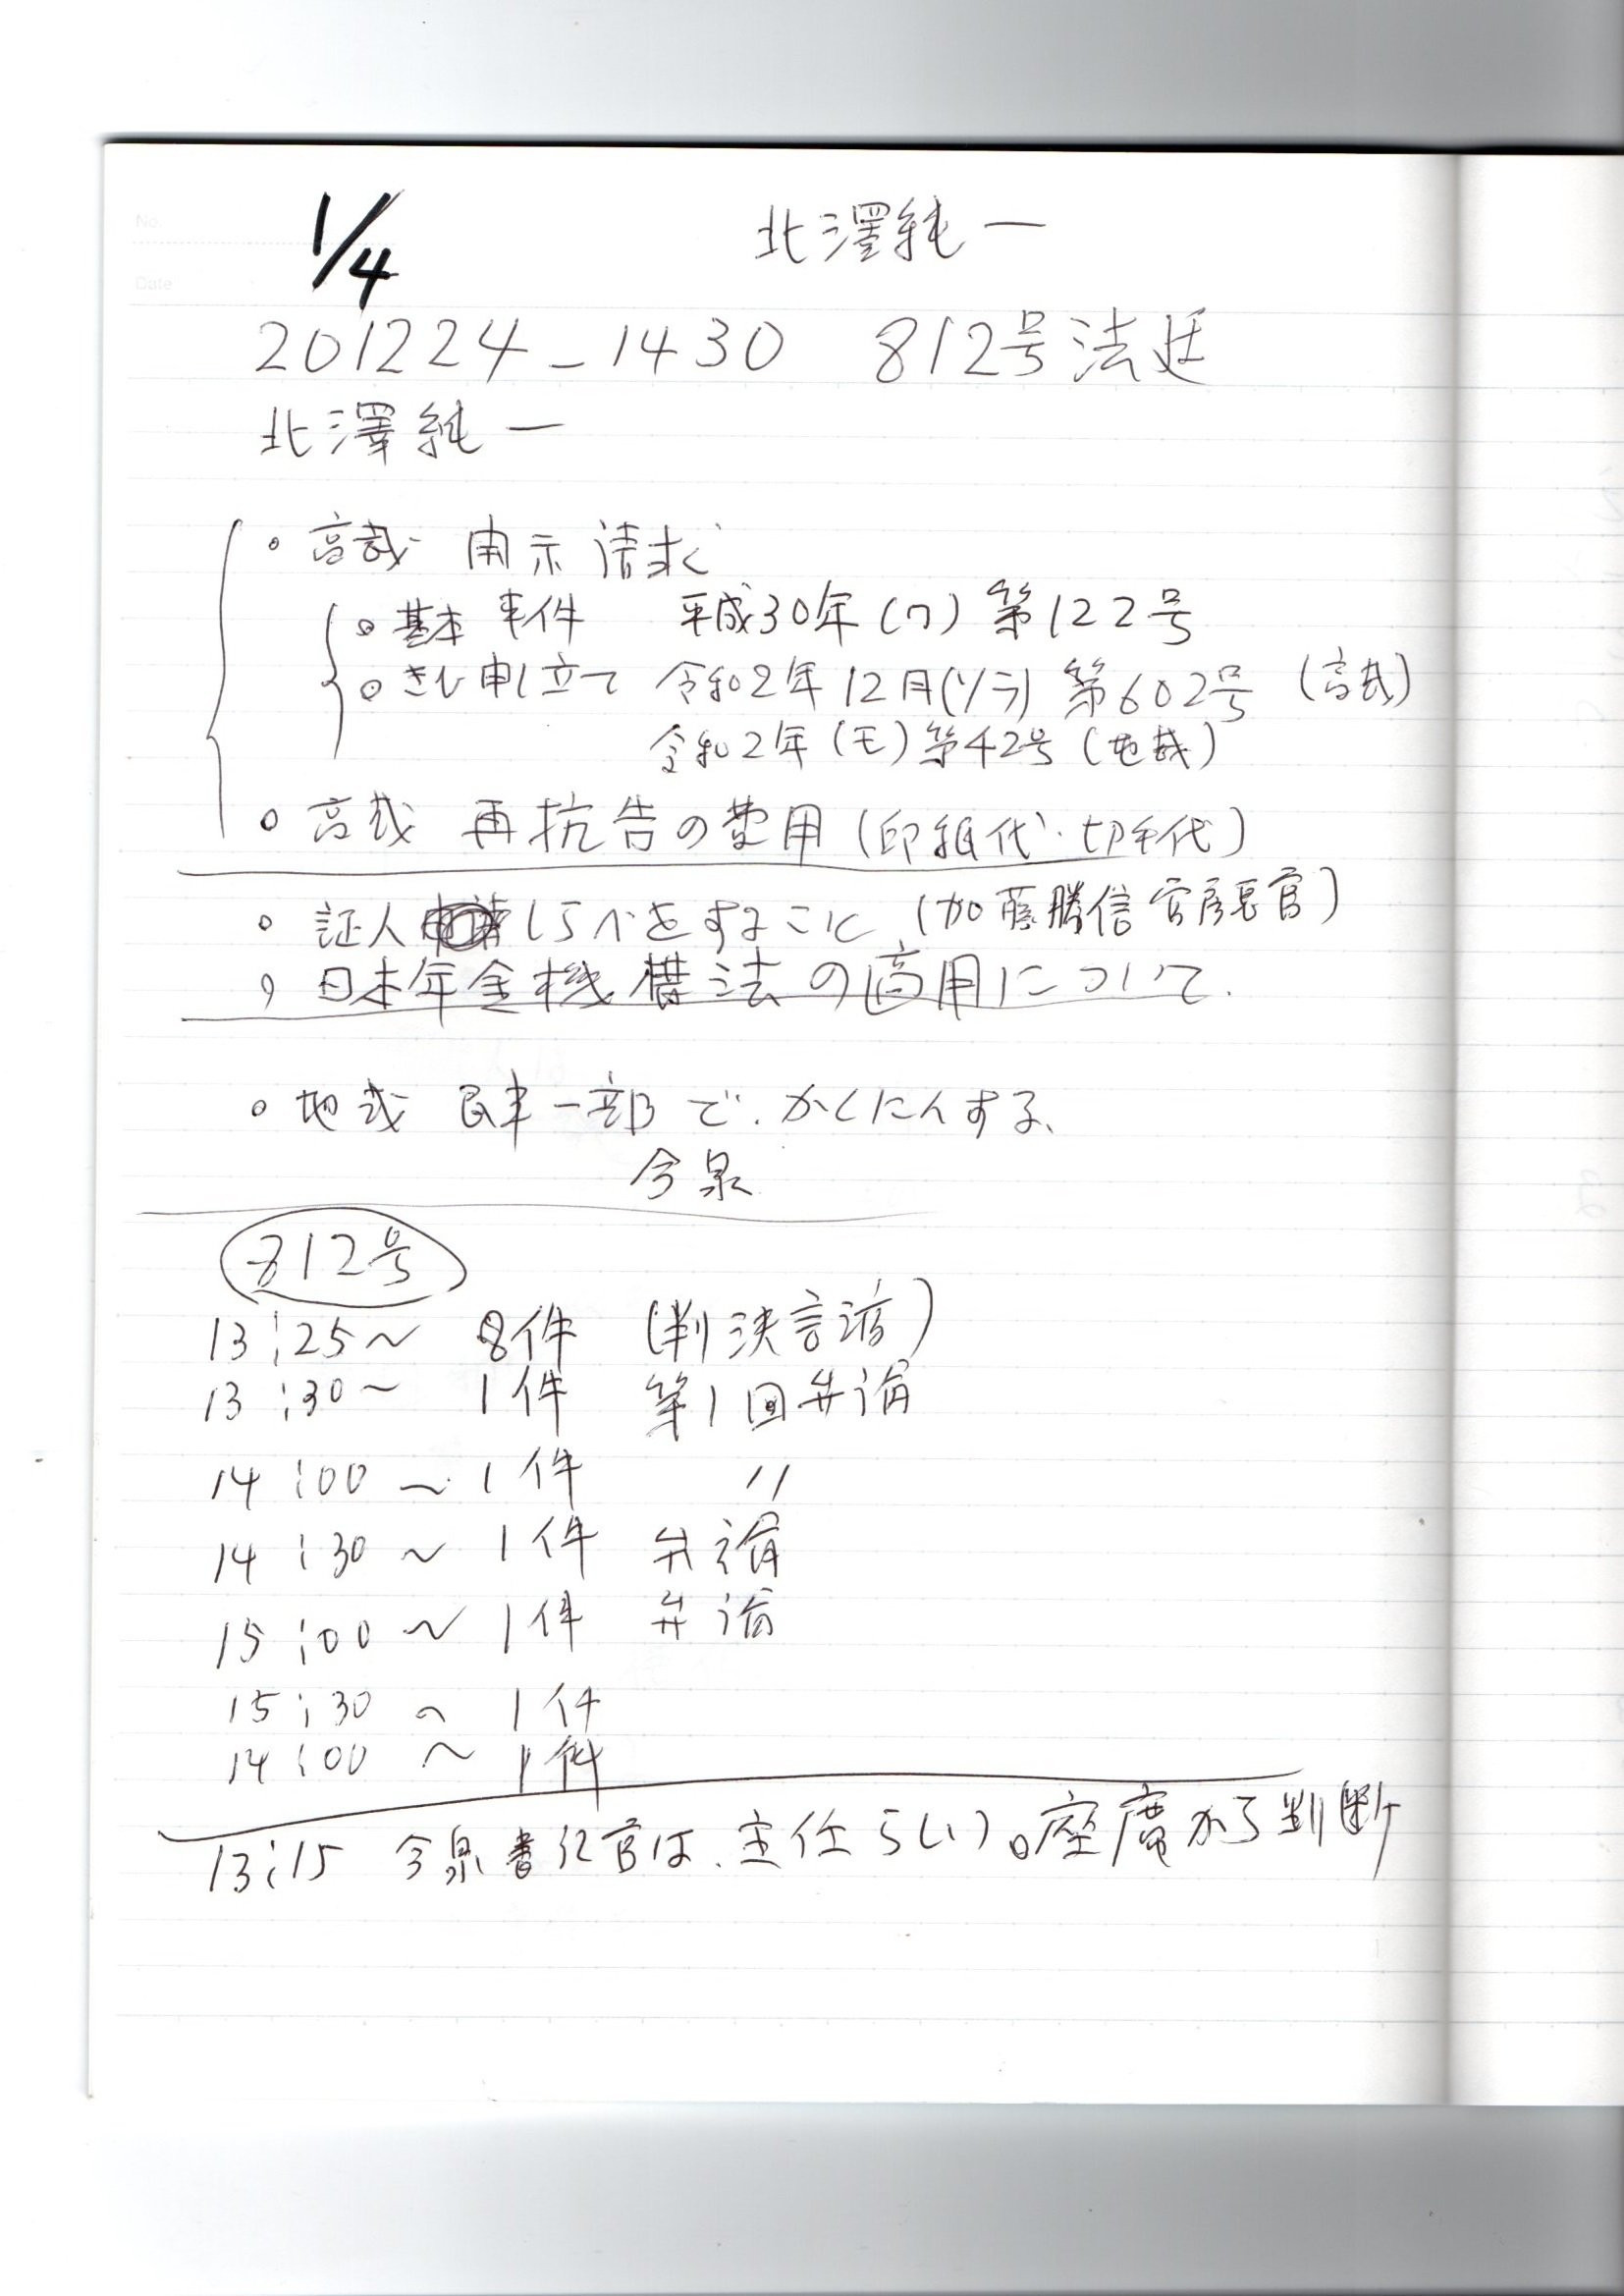 No.
1/4
北澤純一
Date
201224_1430 812号法廷
北澤純一
○ 高裁 開示請求
○ 基本事件 平成30年(ワ)第122号
○ きひ申し立て 令和2年12月(ソラ)第602号 (高裁)
令和2年(モ)第42号(地裁)
○ 高裁 再抗告の費用(印紙代・切手代)
○ 証人 しらべをすること (加藤勝信 官房長官)
○ 日本年金機構法の適用について.
○ 地裁 民事一部で、かくにんする、
今泉
812号
13:25〜 8件 (判決言渡)
13:30〜 1件 第1回弁論
14:00 〜 1件 〃
14:30 〜 1件 弁論
15:00 〜 1件 弁論
15:30 〜 1件
14:00 〜 1件
13:15 今泉書記官は、主任らしい。座席から判断